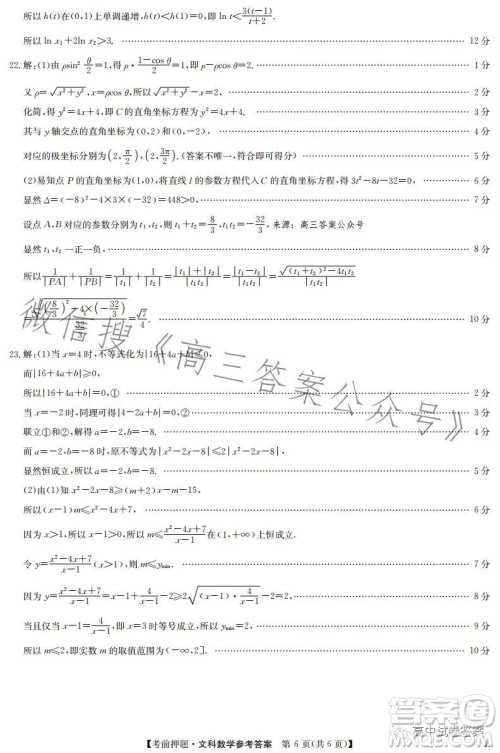 所以h(t)在(0,1)上单调递增,h(t)<h(1)=0,即ln t<3(t-1)/(t+2).
所以ln x₁+2ln x₂>3. 12分
22.解:(1)由ρsin²θ/2=1,得ρ·(1-cos θ)/2=1,即ρ-ρcos θ=2. 1分
又ρ=√(x²+y²),x=ρcos θ,所以√(x²+y²)-x=2. 2分
化简,得y²=4x+4,即C的直角坐标方程为y²=4x+4. 3分
其与y轴交点的直角坐标为(0,2)和(0,-2), 4分
对应的极坐标分别为(2,π/2),(2,3π/2).(答案不唯一,符合即可得分) 5分
(2)易知点P的直角坐标为(1,0),将直线l的参数方程代入C的直角坐标方程,得3t²-8t-32=0. 6分
显然Δ=(-8)²-4×3×(-32)=448>0. 7分
设点A,B对应的参数分别为t₁,t₂,则t₁+t₂=8/3,t₁t₂=-32/3. 来源:高三答案公众号
显然t₁,t₂一正一负,
所以1/|PA|+1/|PB|=1/|t₁|+1/|t₂|=(|t₁|+|t₂|)/|t₁t₂|=|t₁-t₂|/|t₁t₂|=√((t₁+t₂)²-4t₁t₂)/|t₁t₂|
=√((8/3)²-4×(-32/3))/(32/3)=√7/4. 10分
23.解:(1)当x=4时,不等式化为|16+4a+b|≤0. 1分
而|16+4a+b|≥0,
所以|16+4a+b|=0,① 2分
当x=-2时,同理可得|4-2a+b|=0.② 3分
联立①和②,解得a=-2,b=-8. 4分
而a=-2,b=-8时,原不等式为|x²-2x-8|≤2|x²-2x-8|,
显然恒成立,所以a=-2,b=-8. 5分
(2)由(1)知x²-2x-8≥(m+2)x-m-15,
所以(x-1)m≤x²-4x+7, 6分
因为x>1,所以x-1>0,则m≤(x²-4x+7)/(x-1)在(1,+∞)上恒成立.
令y=(x²-4x+7)/(x-1),则m≤yₘᵢₙ. 7分
因为y=(x²-4x+7)/(x-1)=x-1+4/(x-1)-2≥2√((x-1)·4/(x-1))-2=2, 8分
当且仅当x-1=4/(x-1),即x=3时等号成立,所以yₘᵢₙ=2, 9分
所以m≤2,即实数m的取值范围为(-∞,2]. 10分
微信搜《高三答案公众号》
【考前押题·文科数学参考答案 第6页(共6页)】
高中试卷答案